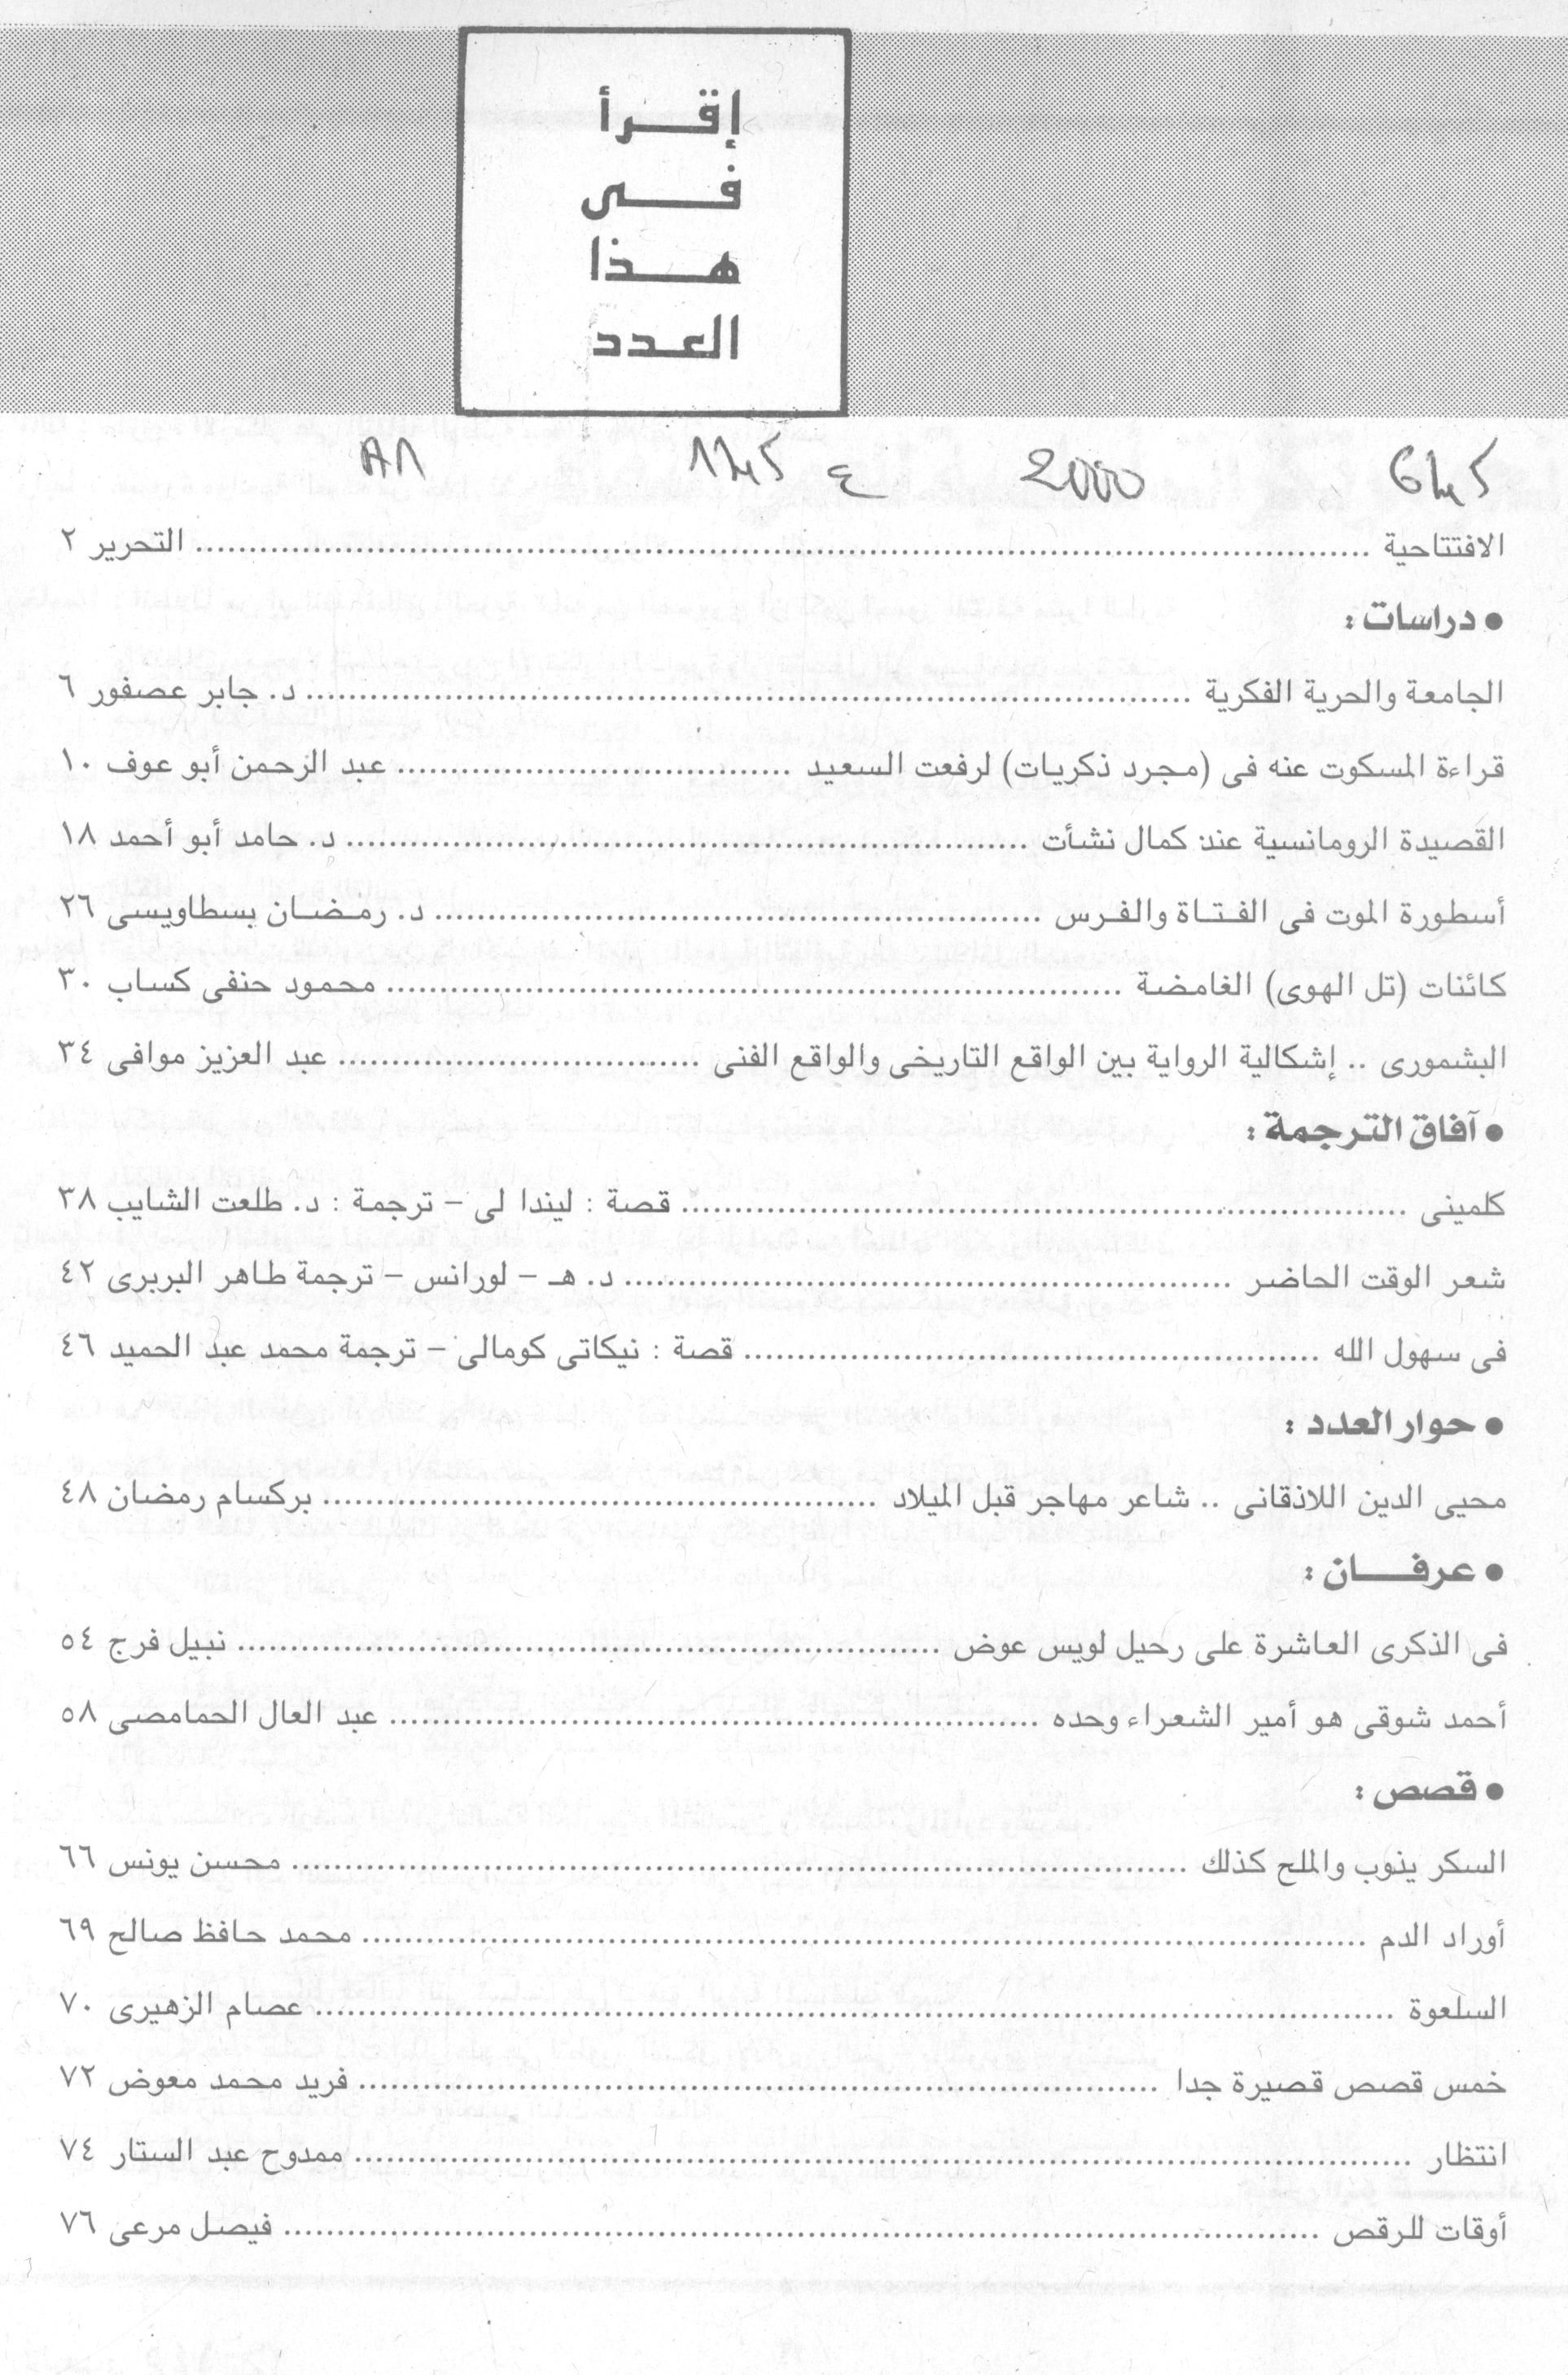 إقرأ
فى
هذا
العدد
2000
الافتتاحية ........ التحرير ٢
• دراسات :
الجامعة والحرية الفكرية ........ د. جابر عصفور ٦
قراءة المسكوت عنه فى (مجرد ذكريات) لرفعت السعيد ........ عبد الرحمن أبو عوف ١٠
القصيدة الرومانسية عند كمال نشأت ........ د. حامد أبو أحمد ١٨
أسطورة الموت فى الفتاة والفرس ........ د. رمضان بسطاويسى ٢٦
كائنات (تل الهوى) الغامضة ........ محمود حنفى كساب ٣٠
البشمورى .. إشكالية الرواية بين الواقع التاريخى والواقع الفنى ........ عبد العزيز موافى ٣٤
• آفاق الترجمة :
كلمينى ........ قصة : ليندا لى – ترجمة : د. طلعت الشايب ٣٨
شعر الوقت الحاضر ........ د. هـ – لورانس – ترجمة طاهر البربرى ٤٢
فى سهول الله ........ قصة : نيكاتى كومالى – ترجمة محمد عبد الحميد ٤٦
• حوار العدد :
محيى الدين اللاذقانى .. شاعر مهاجر قبل الميلاد ........ بركسام رمضان ٤٨
• عرفان :
فى الذكرى العاشرة على رحيل لويس عوض ........ نبيل فرج ٥٤
أحمد شوقى هو أمير الشعراء وحده ........ عبد العال الحمامصى ٥٨
• قصص :
السكر يذوب والملح كذلك ........ محسن يونس ٦٦
أوراد الدم ........ محمد حافظ صالح ٦٩
السلعوة ........ عصام الزهيرى ٧٠
خمس قصص قصيرة جدا ........ فريد محمد معوض ٧٢
انتظار ........ ممدوح عبد الستار ٧٤
أوقات للرقص ........ فيصل مرعى ٧٦